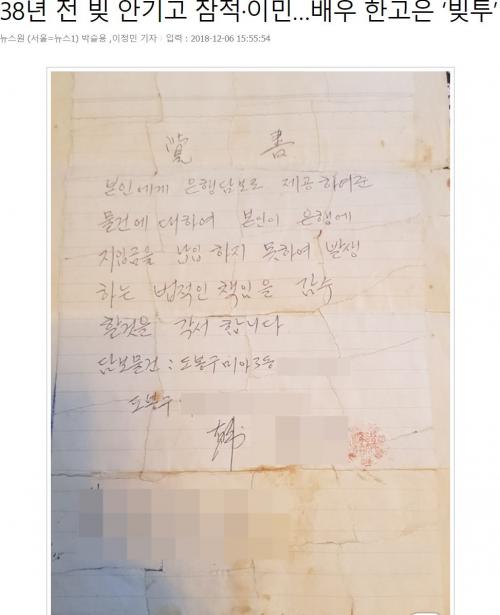 38년 전 빚 안기고 잠적·이민...배우 한고은 ‘빚투’
뉴스원 (서울=뉴스1) 박슬용 ,이정민 기자 | 입력 : 2018-12-06 15:55:54
覺 書
본인에게 은행담보로 제공하여준
물건에 대하여 본인이 은행에
지임금을 납입 하지 못하여 발생
하는 법적인 책임을 감수
할것을 각서 합니다
담보물건 : 도봉구 미아3동
도봉구
韓